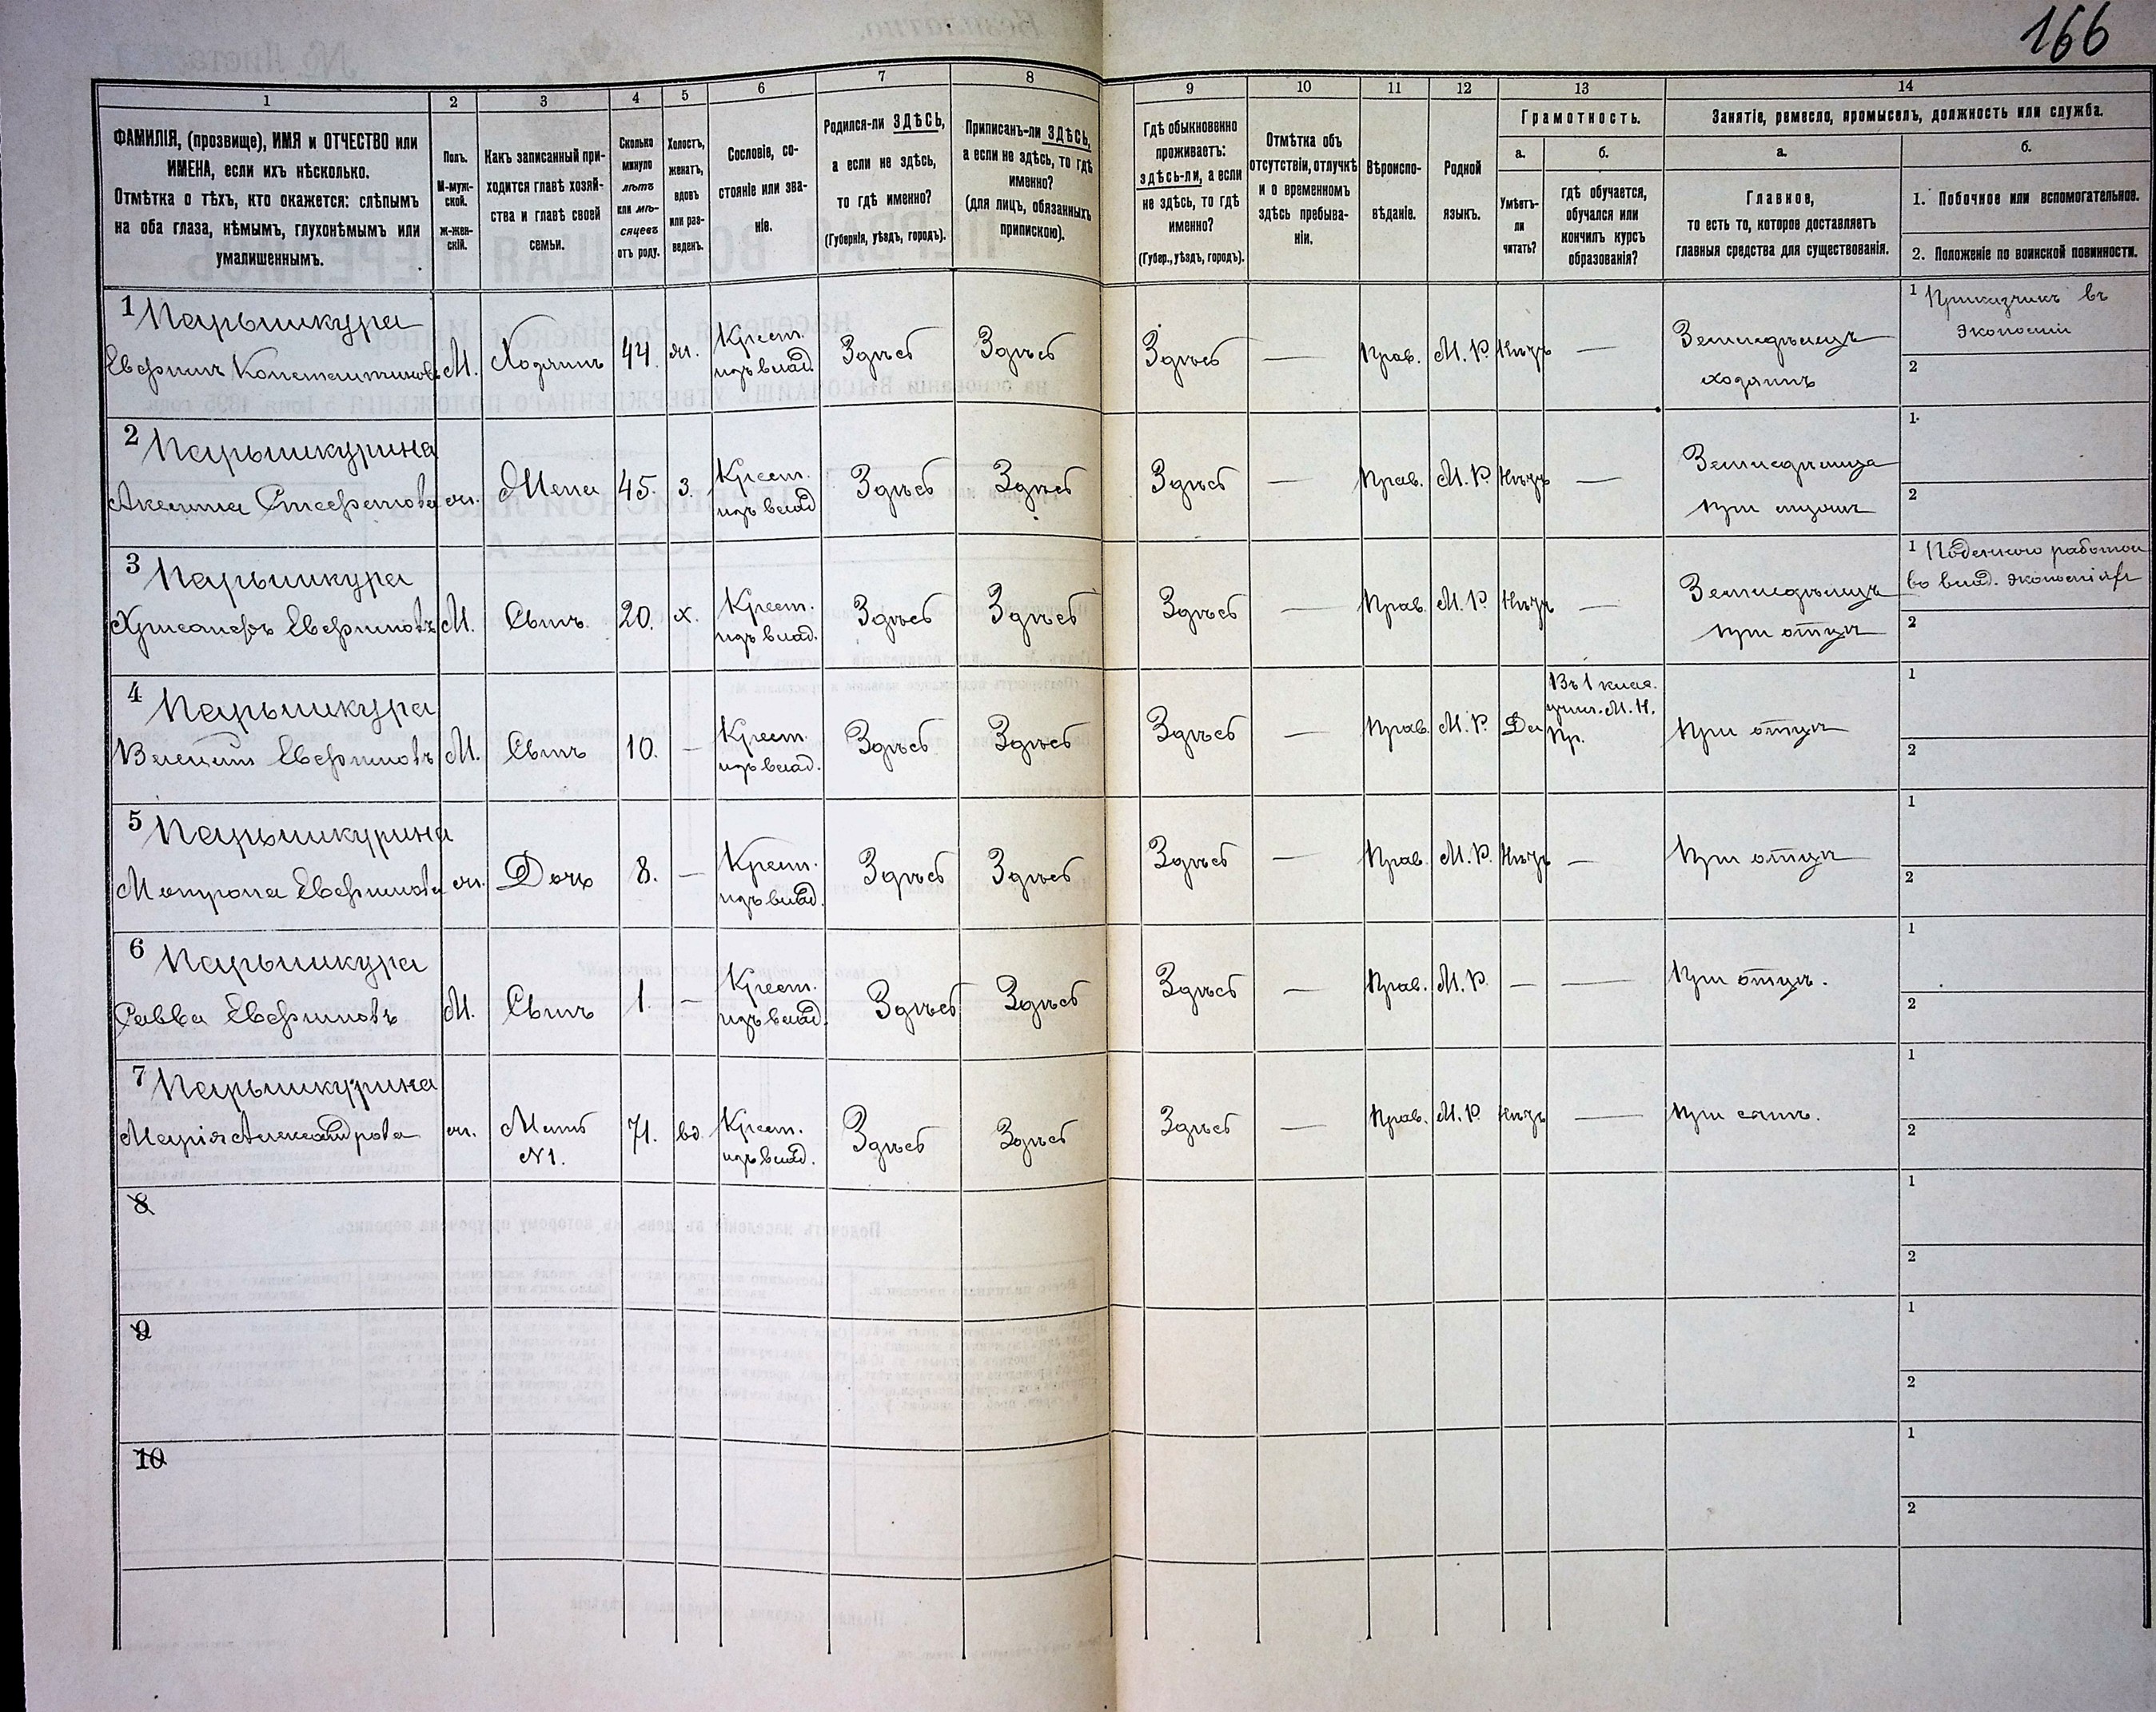 166
1
2
3
4
5
6
7
8
9
10
11
12
13
14
ФАМИЛІЯ, (прозвище), ИМЯ и ОТЧЕСТВО или
ИМЕНА, если ихъ нѣсколько.
Отмѣтка о тѣхъ, кто окажется: слѣпымъ
на оба глаза, нѣмымъ, глухонѣмымъ или
умалишеннымъ.
Полъ.
М-муж-
ской.
ж-жен-
скій.
Какъ записанный при-
ходится главѣ хозяй-
ства и главѣ своей
семьи.
Сколько
минуло
лѣтъ
или мѣ-
сяцевъ
отъ роду.
Холостъ,
женатъ,
вдовъ
или раз-
веденъ.
Сословіе, со-
стояніе или зва-
ніе.
Родился-ли ЗДѢСЬ,
а если не здѣсь,
то гдѣ именно?
(Губернія, уѣздъ, городъ).
Приписанъ-ли ЗДѢСЬ,
а если не здѣсь, то гдѣ
именно?
(для лицъ, обязанныхъ
припискою).
Гдѣ обыкновенно
проживаетъ:
здѣсь-ли, а если
не здѣсь, то гдѣ
именно?
(Губер., уѣздъ, городъ).
Отмѣтка объ
отсутствіи, отлучкѣ
и о временномъ
здѣсь пребыва-
ніи.
Вѣроиспо-
вѣданіе.
Родной
языкъ.
Грамотность.
а.
Умѣетъ-
ли
читать?
б.
гдѣ обучается,
обучался или
кончилъ курсъ
образованія?
Занятіе, ремесло, промыселъ, должность или служба.
а.
Главное,
то есть то, которое доставляетъ
главныя средства для существованія.
б.
1. Побочное или вспомогательное.
2. Положеніе по воинской повинности.
1 Нарышкура
Евфимъ Константиновъ
М.
Хозяинъ
44
ж.
Крест.
изъ влад.
Здѣсь
Здѣсь
Здѣсь
—
Прав.
М. Р.
Нѣтъ
—
Земледѣлецъ
хозяинъ
1 Приказчикъ въ
экономіи
2
2 Нарышкурина
Акелина Стефанова
ж.
Жена
45.
з.
Крест.
изъ влад
Здѣсь
Здѣсь
Здѣсь
—
Прав.
М. Р.
Нѣтъ
—
Земледѣлица
при мужѣ
1
2
3 Нарышкура
Хрисанфъ Евфимовъ
М.
Сынъ
20.
х.
Крест.
изъ влад.
Здѣсь
Здѣсь
Здѣсь
—
Прав.
М. Р.
Нѣтъ
—
Земледѣлецъ
при отцѣ
1 Поденною работою
во влад. экономіях
2
4 Нарышкура
Евфимовъ
М.
Сынъ
10.
—
Крест.
изъ влад.
Здѣсь
Здѣсь
Здѣсь
—
Прав.
М. Р.
Да
Въ 1 клас.
учил. М. Н.
Пр.
При отцѣ
1
2
5 Нарышкурина
Мотрона Евфимова
ж.
Дочь
8.
—
Крест.
изъ влад.
Здѣсь
Здѣсь
Здѣсь
—
Прав.
М. Р.
Нѣтъ
—
При отцѣ
1
2
6 Нарышкура
Савва Евфимовъ
М.
Сынъ
1.
—
Крест.
изъ влад.
Здѣсь
Здѣсь
Здѣсь
—
Прав.
М. Р.
—
—
При отцѣ.
1
2
7 Нарышкурина
Марія Александрова
ж.
Мать
N1.
71.
вд.
Крест.
изъ влад.
Здѣсь
Здѣсь
Здѣсь
—
Прав.
М. Р.
Нѣтъ
—
При сынѣ.
1
2
8
1
2
9
1
2
10
1
2